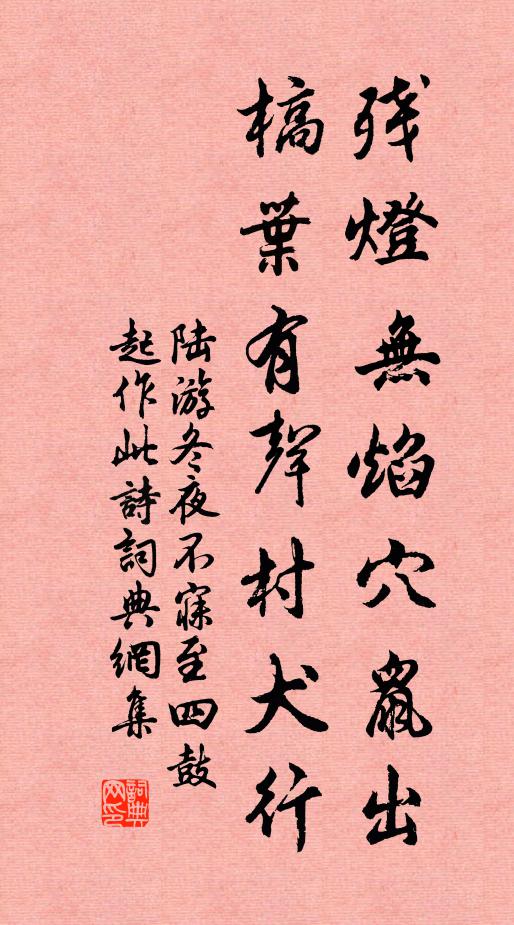 残燈無焰穴鼠出
槁葉有聲村犬行
陆游冬夜不寐至四鼓
起作此詩詞典網集
詞典
网印